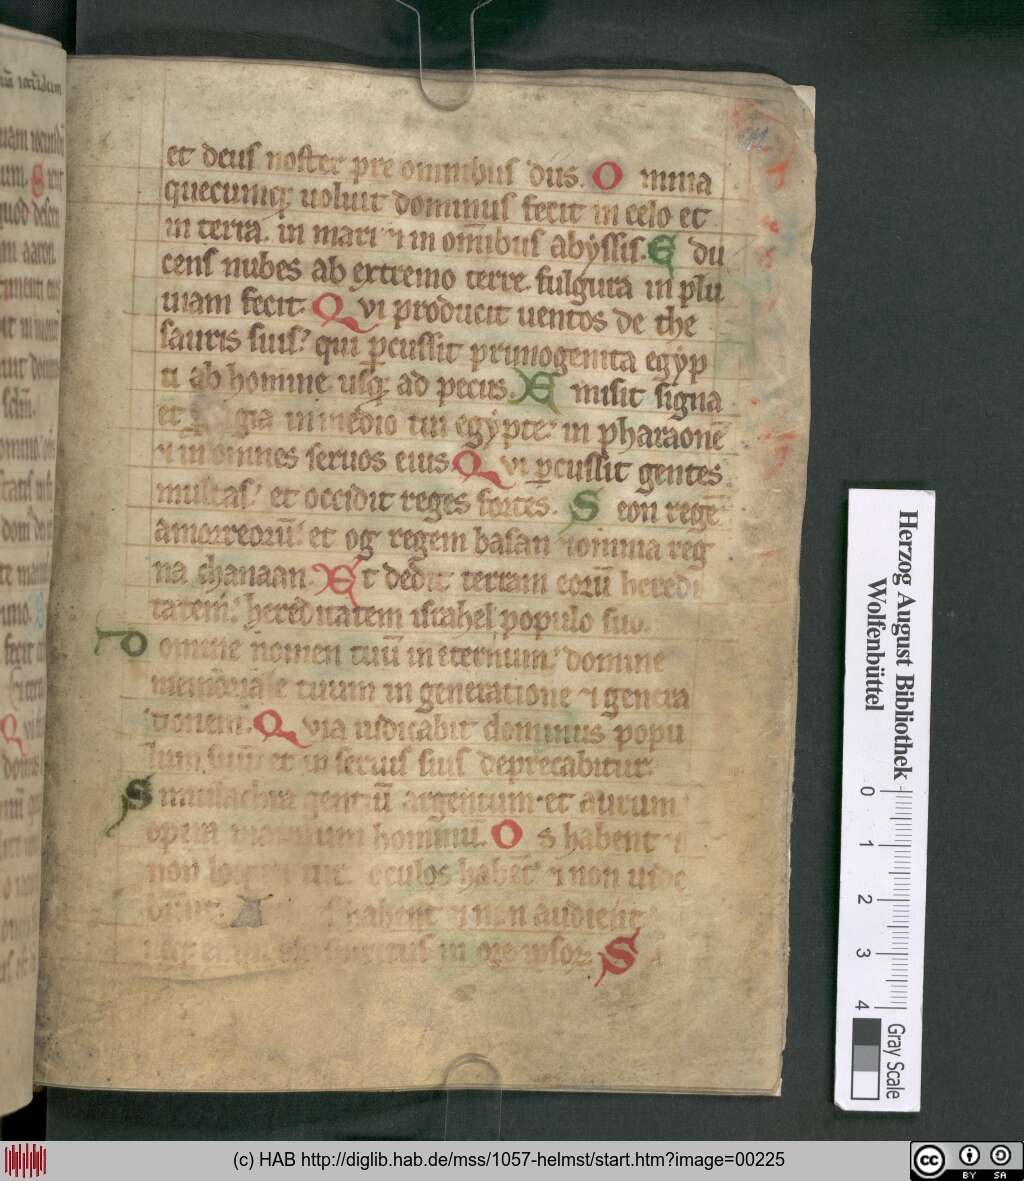 et deus noster pre omnibus diis. O mnia
quecumq; uoluit dominus fecit in celo et
in terra. in mari ⁊ in om̄ibus abyssis. E du
cens nubes ab extremo terre. fulgura in plu
uiam fecit. Q vi producit uentos de the
sauris suis? qui ꝑcussit primogenita egyp
ti ab homine usq; ad pecus. E misit signa
et gia in medio tui egypte? in pharaonē
⁊ in omnes seruos eius. Q vi ꝑcussit gentes
multas? et occidit reges fortes. S eon regē
amorreorū? et og regem basan ⁊ omnia reg
na chanaan. E t dedit terram eorū heredi
tatem? hereditatem israhel populo suo.
D omine nomen tuū in eternum? domine
memoriale tuum in generatione ⁊ genera
tionem. Q via iudicabit dominus popu
lum suū et in seruis suis deprecabitur.
S imulachra gentiū argentum et aurum
opera manuum hominū. O s habent ⁊
non oculos habēt ⁊ non uide
bunt. A habent ⁊ non audient
in ore ipsoꝝ. S
Herzog August Bibliothek
Wolfenbüttel
0 1 2 3 4
Gray Scale
(c) HAB http://diglib.hab.de/mss/1057-helmst/start.htm?image=00225
cc BY SA